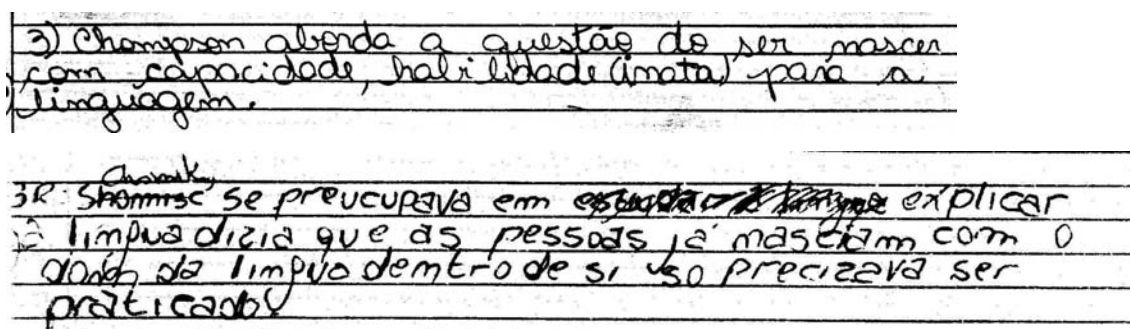 3) Chompson aborda a questão do ser nascer
com capacidade, habilidade (inata) para a
linguagem.
Chomsk
3R Shomisc se preucupava em explicar
a lingua dizia que as pessoas já nasciam com o
dom da lingua dentro de si so precizava ser
praticado